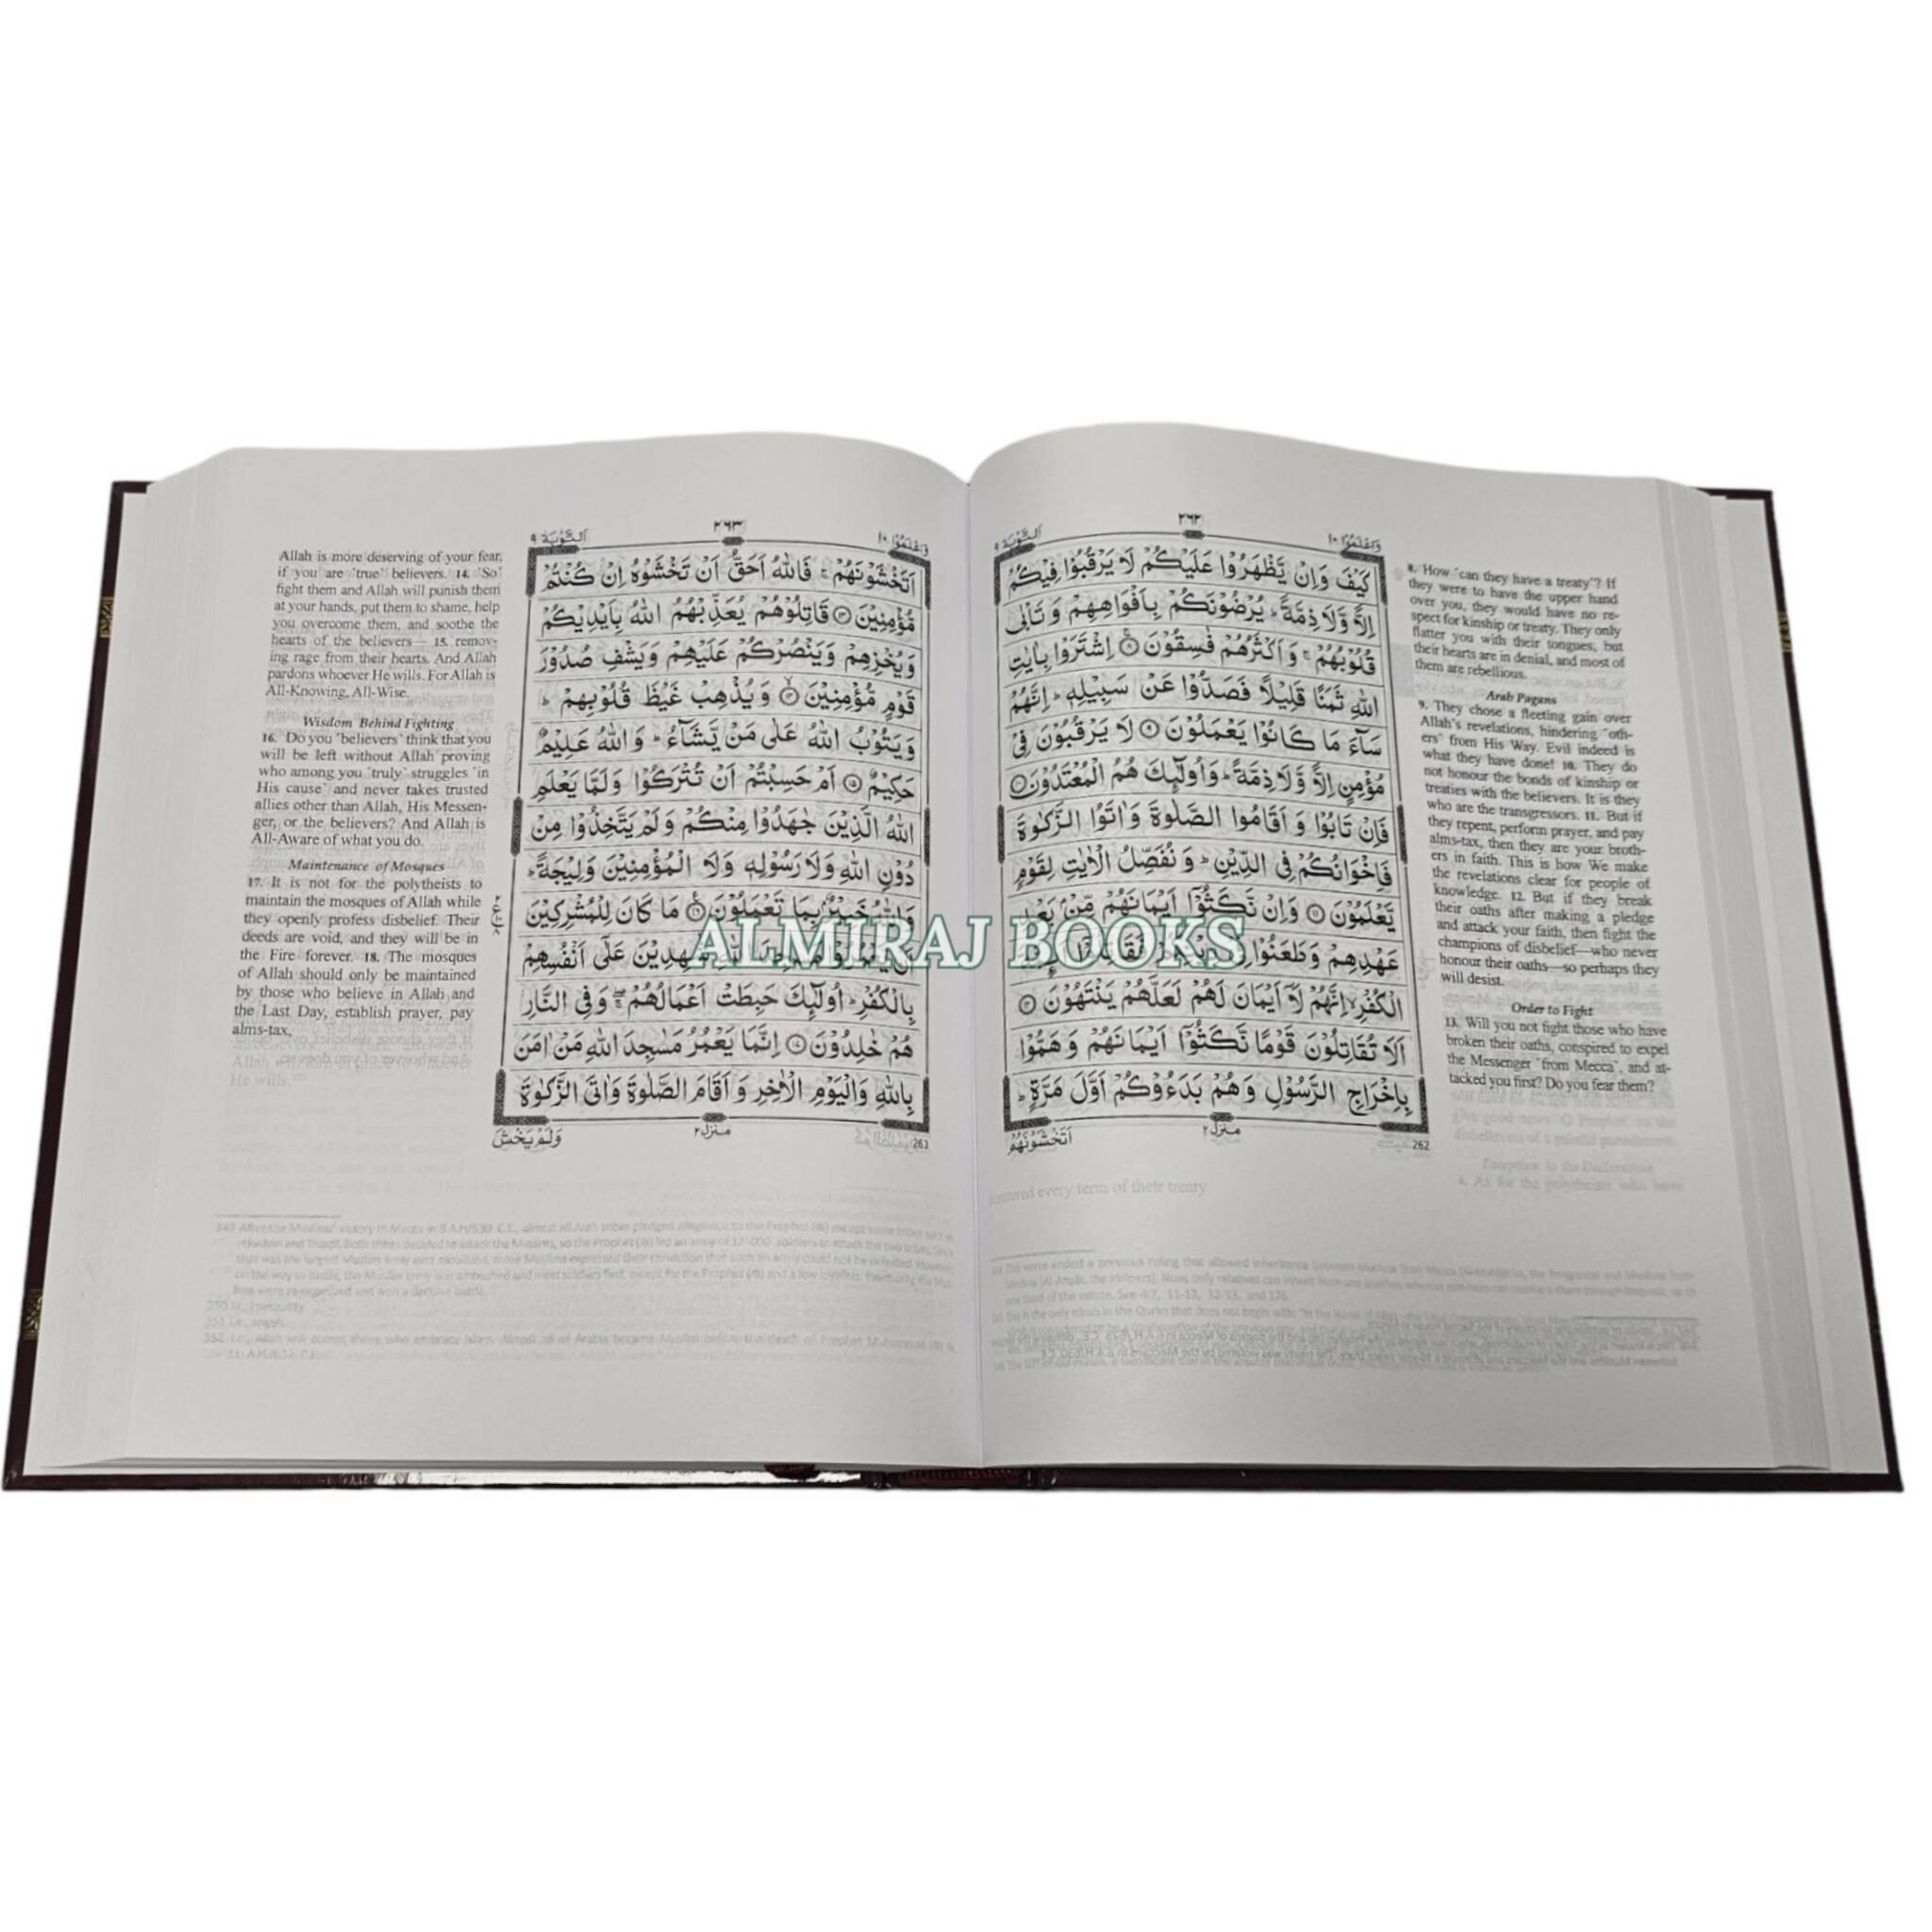 وَاعْلَمُوْٓا ١٠
٢٦٢
اَلتَّوْبَة ٩
كَيْفَ وَاِنْ يَّظْهَرُوْا عَلَيْكُمْ لَا يَرْقُبُوْا فِيْكُمْ
اِلًّا وَّلَا ذِمَّةً ؕ يُرْضُوْنَكُمْ بِاَفْوَاهِهِمْ وَتَاْبٰى
قُلُوْبُهُمْ ۚ وَاَكْثَرُهُمْ فٰسِقُوْنَ ۝٨ اِشْتَرَوْا بِاٰيٰتِ
اللّٰهِ ثَمَنًا قَلِيْلًا فَصَدُّوْا عَنْ سَبِيْلِهٖ ؕ اِنَّهُمْ
سَآءَ مَا كَانُوْا يَعْمَلُوْنَ ۝٩ لَا يَرْقُبُوْنَ فِيْ
مُؤْمِنٍ اِلًّا وَّلَا ذِمَّةً ؕ وَاُولٰٓئِكَ هُمُ الْمُعْتَدُوْنَ ۝١٠
فَاِنْ تَابُوْا وَاَقَامُوا الصَّلٰوةَ وَاٰتَوُا الزَّكٰوةَ
فَاِخْوَانُكُمْ فِى الدِّيْنِ ؕ وَنُفَصِّلُ الْاٰيٰتِ لِقَوْمٍ
يَّعْلَمُوْنَ ۝١١ وَاِنْ نَّكَثُوْٓا اَيْمَانَهُمْ مِّنْۢ بَعْدِ
عَهْدِهِمْ وَطَعَنُوْا
الْكُفْرِ ۙ اِنَّهُمْ لَآ اَيْمَانَ لَهُمْ لَعَلَّهُمْ يَنْتَهُوْنَ ۝١٢
اَلَا تُقَاتِلُوْنَ قَوْمًا نَّكَثُوْٓا اَيْمَانَهُمْ وَهَمُّوْا
بِاِخْرَاجِ الرَّسُوْلِ وَهُمْ بَدَءُوْكُمْ اَوَّلَ مَرَّةٍ ؕ
262
منزل ٢
اَتَخْشَوْنَهُمْ
8. How ˹can they have a treaty˺? If
they were to have the upper hand
over you, they would have no re-
spect for kinship or treaty. They only
flatter you with their tongues, but
their hearts are in denial, and most of
them are rebellious.
Arab Pagans
9. They chose a fleeting gain over
Allah's revelations, hindering ˹oth-
ers˺ from His Way. Evil indeed is
what they have done! 10. They do
not honour the bonds of kinship or
treaties with the believers. It is they
who are the transgressors. 11. But if
they repent, perform prayer, and pay
alms-tax, then they are your broth-
ers in faith. This is how We make
the revelations clear for people of
knowledge. 12. But if they break
their oaths after making a pledge
and attack your faith, then fight the
champions of disbelief—who never
honour their oaths—so perhaps they
will desist.
Order to Fight
13. Will you not fight those who have
broken their oaths, conspired to expel
the Messenger ˹from Mecca˺, and at-
tacked you first? Do you fear them?
وَاعْلَمُوْٓا ١٠
٢٦٣
اَلتَّوْبَة ٩
اَتَخْشَوْنَهُمْ ۚ فَاللّٰهُ اَحَقُّ اَنْ تَخْشَوْهُ اِنْ كُنْتُمْ
مُّؤْمِنِيْنَ ۝١٣ قَاتِلُوْهُمْ يُعَذِّبْهُمُ اللّٰهُ بِاَيْدِيْكُمْ
وَيُخْزِهِمْ وَيَنْصُرْكُمْ عَلَيْهِمْ وَيَشْفِ صُدُوْرَ
قَوْمٍ مُّؤْمِنِيْنَ ۝١٤ وَيُذْهِبْ غَيْظَ قُلُوْبِهِمْ ؕ
وَيَتُوْبُ اللّٰهُ عَلٰى مَنْ يَّشَآءُ ؕ وَاللّٰهُ عَلِيْمٌ
حَكِيْمٌ ۝١٥ اَمْ حَسِبْتُمْ اَنْ تُتْرَكُوْا وَلَمَّا يَعْلَمِ
اللّٰهُ الَّذِيْنَ جٰهَدُوْا مِنْكُمْ وَلَمْ يَتَّخِذُوْا مِنْ
دُوْنِ اللّٰهِ وَلَا رَسُوْلِهٖ وَلَا الْمُؤْمِنِيْنَ وَلِيْجَةً ؕ
وَاللّٰهُ خَبِيْرٌۢ بِمَا تَعْمَلُوْنَ ۝١٦ مَا كَانَ لِلْمُشْرِكِيْنَ
اَنْ يَّعْمُرُوْا شٰهِدِيْنَ عَلٰٓى اَنْفُسِهِمْ
بِالْكُفْرِ ؕ اُولٰٓئِكَ حَبِطَتْ اَعْمَالُهُمْ ۖۚ وَفِى النَّارِ
هُمْ خٰلِدُوْنَ ۝١٧ اِنَّمَا يَعْمُرُ مَسٰجِدَ اللّٰهِ مَنْ اٰمَنَ
بِاللّٰهِ وَالْيَوْمِ الْاٰخِرِ وَاَقَامَ الصَّلٰوةَ وَاٰتَى الزَّكٰوةَ
263
منزل ٢
وَلَمْ يَخْشَ
Allah is more deserving of your fear,
if you are ˹true˺ believers. 14. ˹So˺
fight them and Allah will punish them
at your hands, put them to shame, help
you overcome them, and soothe the
hearts of the believers— 15. remov-
ing rage from their hearts. And Allah
pardons whoever He wills. For Allah is
All-Knowing, All-Wise.
Wisdom Behind Fighting
16. Do you ˹believers˺ think that you
will be left without Allah proving
who among you ˹truly˺ struggles ˹in
His cause˺ and never takes trusted
allies other than Allah, His Messen-
ger, or the believers? And Allah is
All-Aware of what you do.
Maintenance of Mosques
17. It is not for the polytheists to
maintain the mosques of Allah while
they openly profess disbelief. Their
deeds are void, and they will be in
the Fire forever. 18. The mosques
of Allah should only be maintained
by those who believe in Allah and
the Last Day, establish prayer, pay
alms-tax,
ALMIRAJ BOOKS